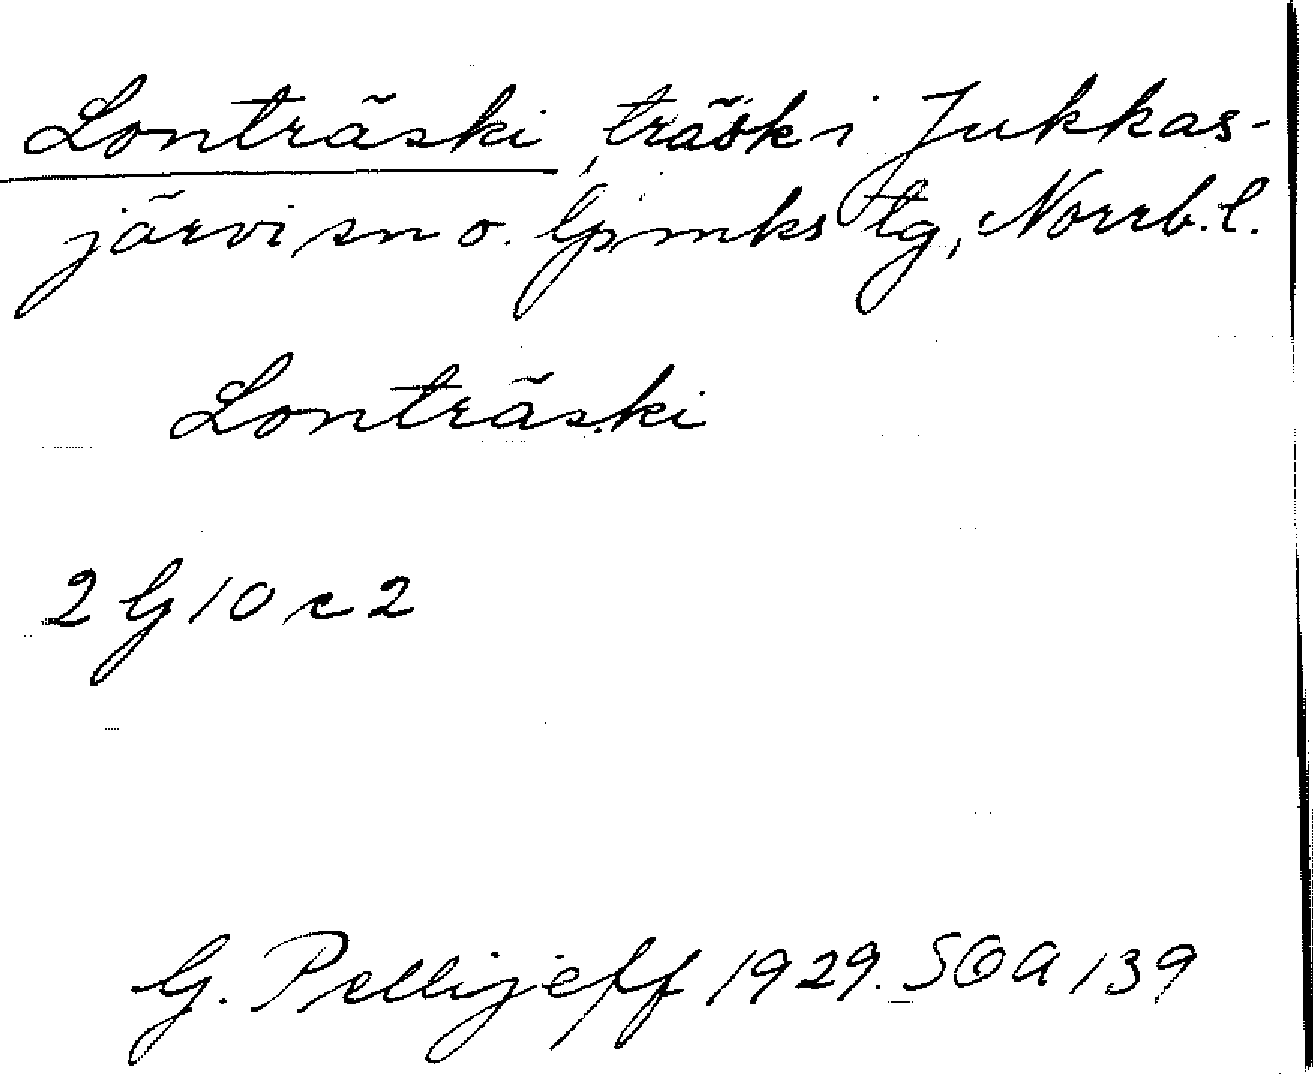 Lonträski, träsk i Jukkas-
järvi sn o. Gjmks tg, Norrb. l.
Lonträski
2 G 10 c 2
G. Pellijeff 1929. SOA 139